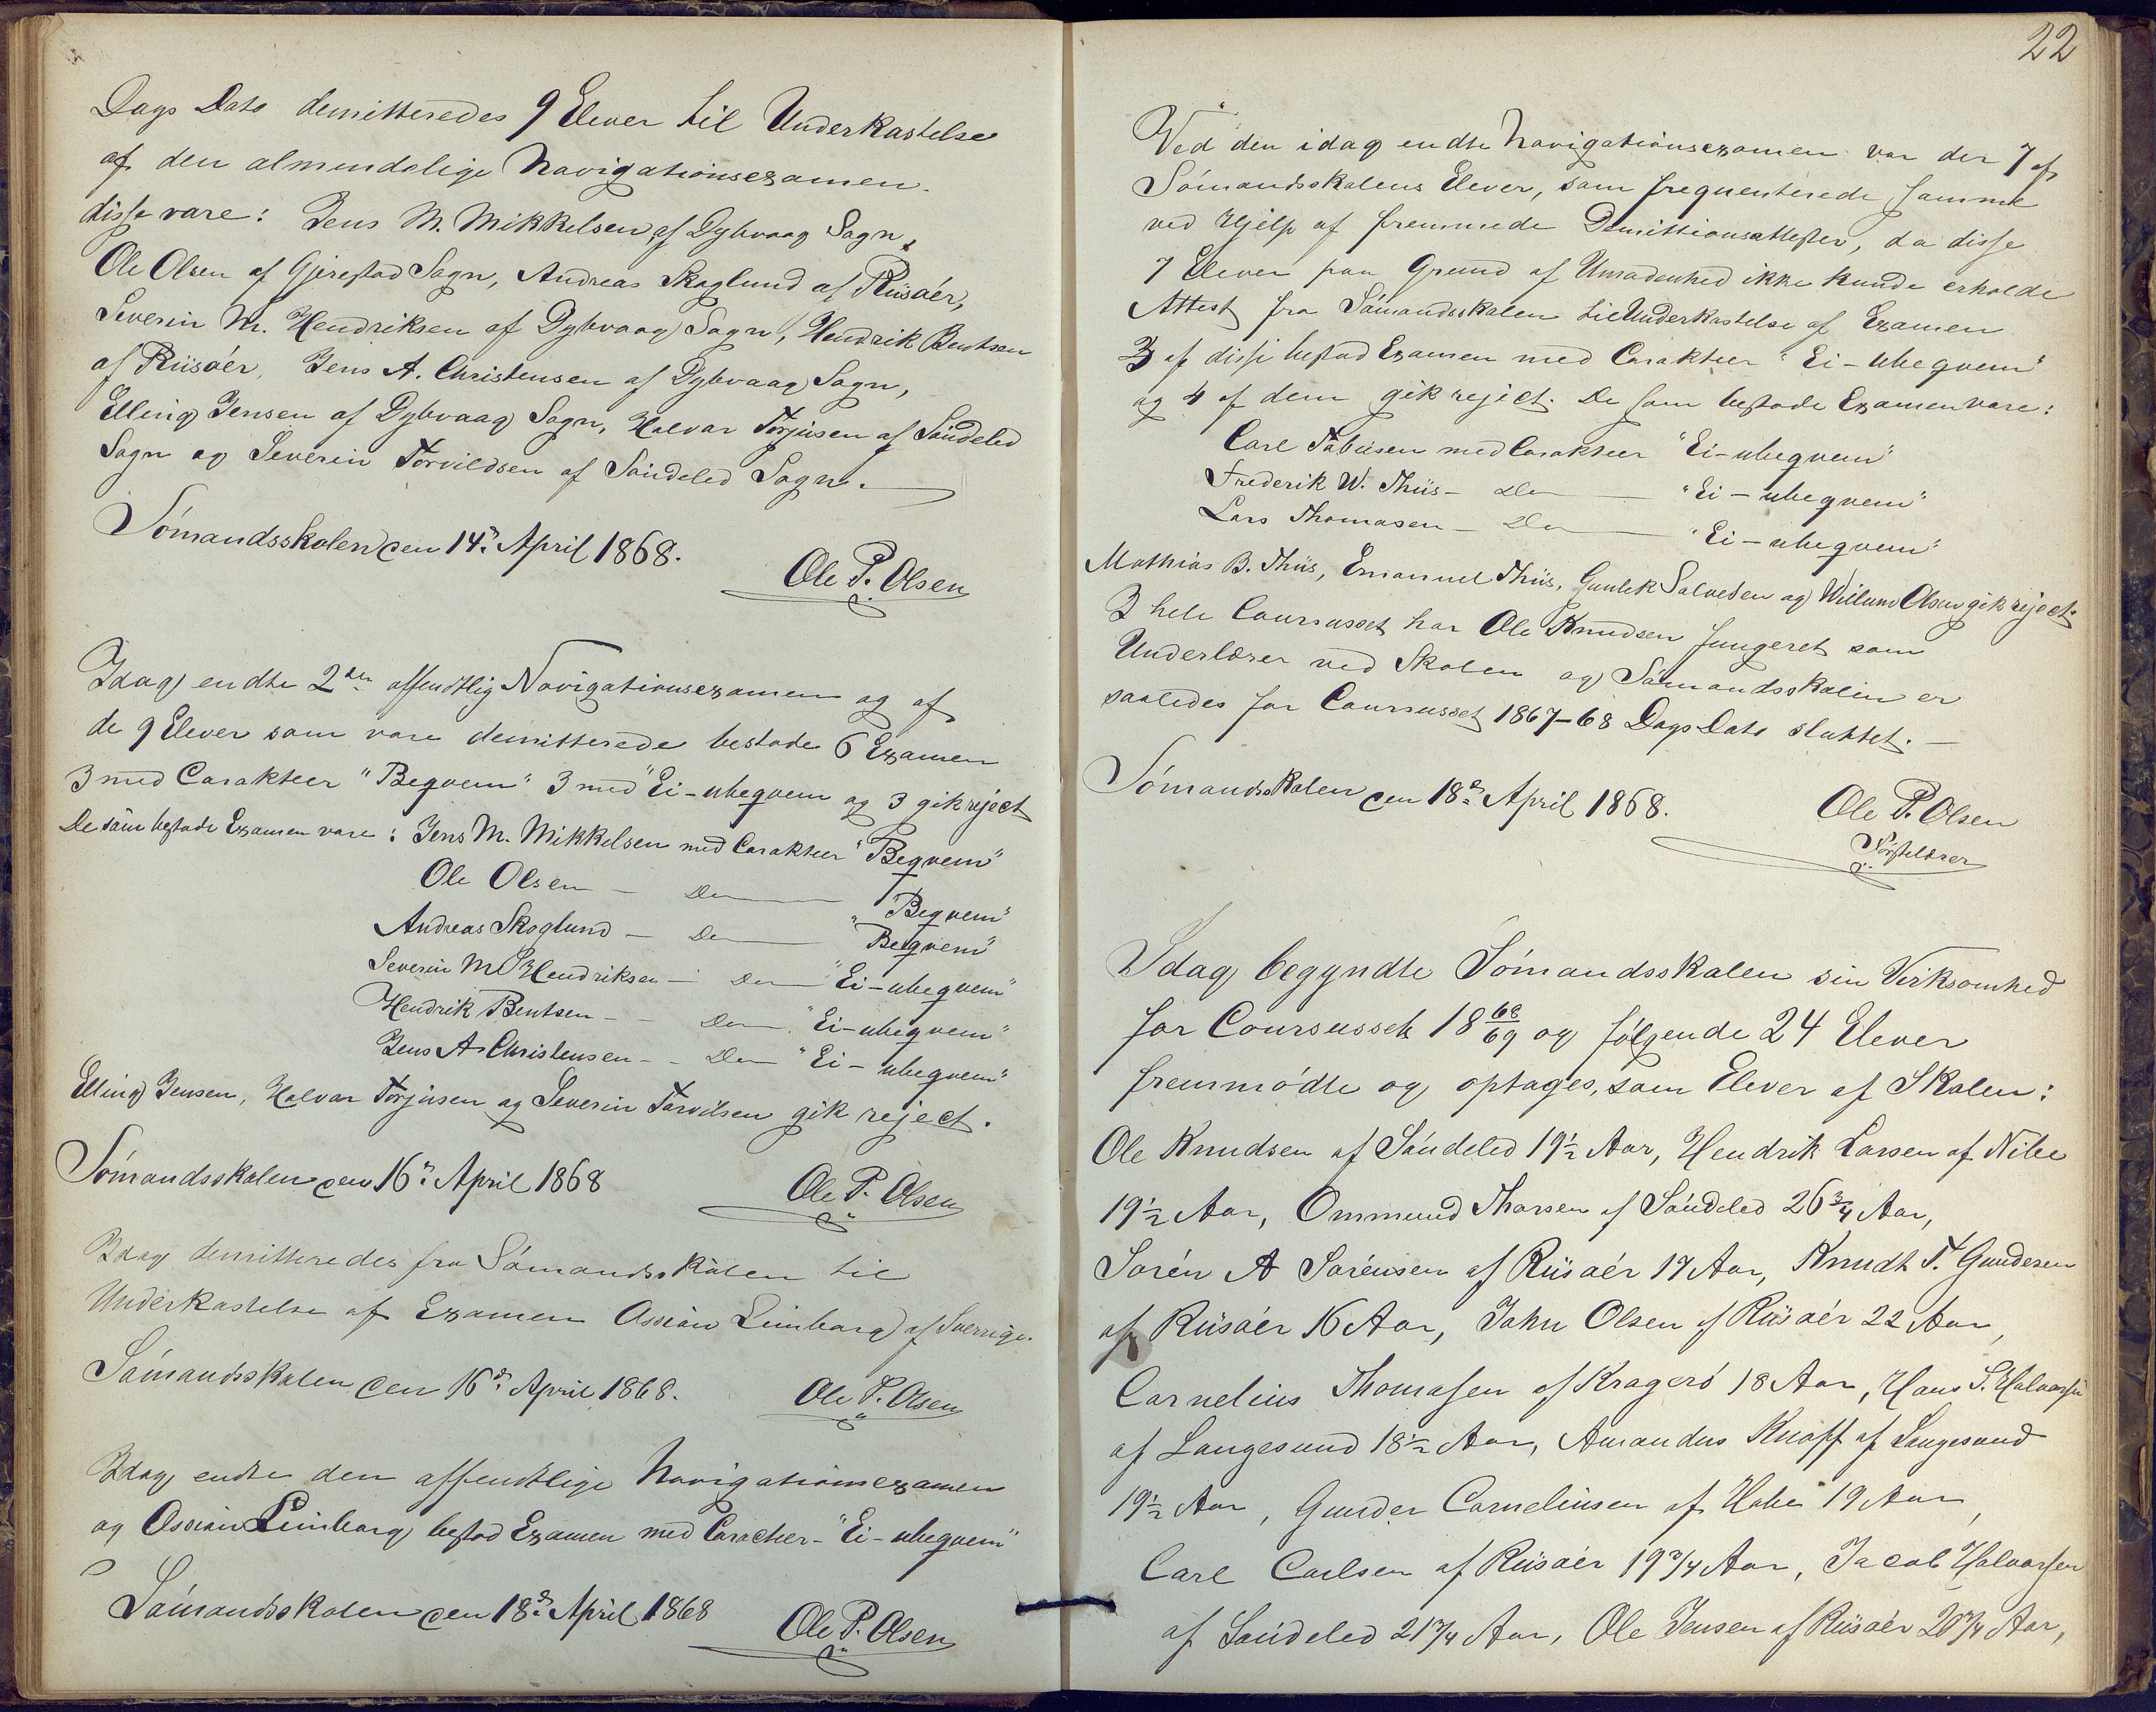 Dags Dato demitteredes 9 Elever til Underkastelse
af den almindelige Navigationsexamen.
disse vare: Jens M. Mikkelsen af Dybvaag Sogn,
Ole Olsen af Gjerestad Sogn, Andreas Skoglund af Riisöer,
Severin M. Hendriksen af Dybvaag Sogn, Hendrik Bentsen
af Riisöer, Jens A. Christensen af Dybvaag Sogn,
Elling Jensen af Dybvaag Sogn, Halvar Torjusen af Söndeled
Sogn og Severin Torvildsen af Söndeled Sogn.
Sömandsskolen den 14d April 1868.
Ole P. Olsen
Idag endte 2den offentlig Navigationsexamen og af
de 9 Elever som vare demitterede bestode 6 Examen
3 med Carakteer "Beqvem" 3 med "Ei-ubeqvem og 3 gik reject
De som bestode Examen vare: Jens M. Mikkelsen med Carakteer "Beqvem"
Ole Olsen — Do — "Beqvem"
Andreas Skoglund — Do — "Beqvem"
Severin M. Hendriksen — Do — "Ei-ubeqvem"
Hendrik Bentsen — Do — "Ei-ubeqvem"
Jens A Christensen — Do "Ei-ubeqvem"
Elling Jensen, Halvar Torjusen og Severin Torvilsen gik reject.
Sömandsskolen den 16d April 1868
Ole P. Olsen
Idag demitteredes fra Sömandsskolen til
Underkastelse af Examen Ossian Limborg af Sverrige.
Sömandsskolen den 16d April 1868.
Ole P. Olsen
Idag endte den offentlige Navigationsexamen
og Ossian Limborg bestod Examen med Caracteer - "Ei-ubeqvem"
Sömandsskolen den 18d April 1868
Ole P. Olsen
22
Ved den idag endte Navigationsexamen var der 7 af
Sömandsskolens Elever, som frequenterede samme
ved Hjelp af fremmede Dimittionsattester, da disse
7 Elever paa Grund af Umodenhed ikke kunde erholde
Attest fra Sömandsskolen til Underkastelse af Examen
3 af disse bestod Examen med Carakteer "Ei-ubeqvem"
og 4 af dem gik reject. De som bestode Examen vare:
Carl Tobiesen med Carakteer "Ei-ubeqvem"
Frederik W. Thiis — Do — "Ei-ubeqvem"
Lars Thomasen — Do — "Ei-ubeqvem"
Mathias B. Thiis, Emanuel Thiis, Gunlek Salvesen og Willum Olsen gik reject.
I hele Coursusset har Ole Knudsen fungeret som
Underlærer ved Skolen og Sömandsskolen er
saaledes for Coursusset 1867-68 Dags Dato sluttet.
Sömandsskolen den 18d April 1868.
Ole P. Olsen
Förstelærer
Idag begyndte Sömandsskolen sin Virksomhed
for Coursusset 18 68/69 og fölgende 24 Elever
fremmödte og optages, som Elever af Skolen:
Ole Knudsen af Söndeled 19½ Aar, Hendrik Larsen af Nibe
19½ Aar, Ommund Thorsen af Söndeled 26¾ Aar,
Sören A Sörensen af Riisöer 17 Aar, Knudt T. Gundersen
af Riisöer 16 Aar, John Olsen af Riisöer 22 Aar,
Cornelius Thomasen af Kragerö 18 Aar, Hans S. Halvorsen
af Langesund 18½ Aar, Amandus Knoff af Langesund
19½ Aar, Gunder Corneliusen af Holte 19 Aar,
Carl Carlsen af Riisöer 19¾ Aar, Jacob Halvorsen
af Söndeled 21¾ Aar, Ole Jensen af Riisöer 20¾ Aar,